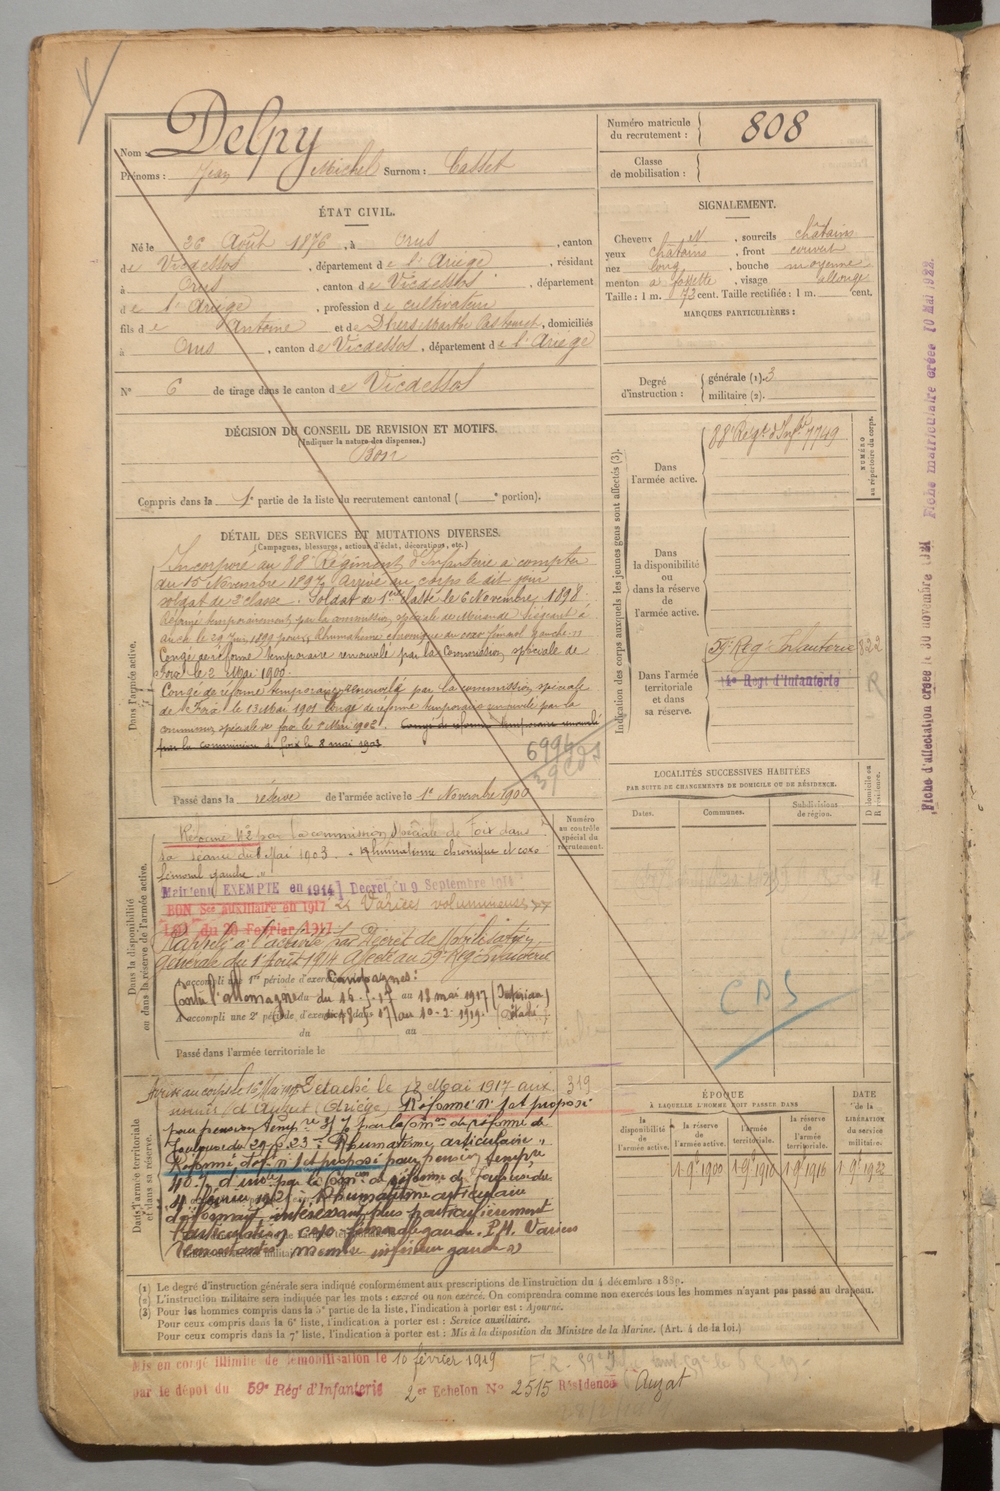 Nom : Delpy
Prénoms : Jean Michel Surnom : Casset
Numéro matricule
du recrutement : 808
Classe
de mobilisation :
ÉTAT CIVIL.
Né le 26 Août 1876, à Orus, canton
de Vicdessos, département de l'Ariège, résidant
à Orus, canton de Vicdessos, département
de l'Ariège, profession de cultivateur
fils de Antoine et de Dhers Marthe, domiciliés
à Orus, canton de Vicdessos, département de l'Ariège
N° 6 de tirage dans le canton de Vicdessos
SIGNALEMENT.
Cheveux N, sourcils châtains
yeux châtains, front couvert
nez long, bouche moyenne
menton à fossette, visage allongé
Taille : 1 m. 73 cent. Taille rectifiée : 1 m. cent.
MARQUES PARTICULIÈRES :
Degré
d'instruction :
générale (1). 3
militaire (2).
DÉCISION DU CONSEIL DE REVISION ET MOTIFS.
(Indiquer la nature des dispenses.)
Bon
Compris dans la 1e partie de la liste du recrutement cantonal ( e portion).
DÉTAIL DES SERVICES ET MUTATIONS DIVERSES.
(Campagnes, blessures, actions d'éclat, décorations, etc.)
Dans l'armée active.
Incorporé au 88e Régiment d'Infanterie à compter
du 15 Novembre 1897. Arrivé au corps le dit jour
soldat de 2e classe. Soldat de 1ère classe le 6 Novembre 1898.
Réformé temporairement par la commission spéciale de Mirande siégeant à
Auch le 29 Juin 1899 pour Rhumatisme chronique du coxo fémoral gauche
Congé de réforme temporaire renouvelé par la Commission spéciale de
Foix le 2 Mai 1900.
Congé de réforme temporaire renouvelé par la commission spéciale
de Foix le 13 Mai 1901 Congé de réforme temporaire renouvelé par la
commission spéciale de Foix le 5 Mai 1902. Congé de réforme temporaire renouvelé
par la commission de Foix le 8 mai 1903
6994
39 CDS
Passé dans la réserve de l'armée active le 1er Novembre 1900
Indication des corps auxquels les jeunes gens sont affectés (3).
Dans
l'armée active.
88e Régt d'Infie 7749
NUMÉRO
au répertoire du corps.
Dans
la disponibilité
ou dans la réserve
de
l'armée active.
Dans l'armée
territoriale
et dans
sa réserve.
59e Rég Infanterie 822
14e Regt d'Infanterie R
LOCALITÉS SUCCESSIVES HABITÉES
PAR SUITE DE CHANGEMENTS DE DOMICILE OU DE RÉSIDENCE.
Dates.
Communes.
Subdivisions
de région.
D domicile ou
R résidence.
Numéro
au contrôle
spécial du
recrutement.
Dans la disponibilité
ou dans la réserve de l'armée active.
Réformé N° 2 par la commission spéciale de Foix dans
sa séance du 8 Mai 1903. Rhumatisme chronique et coxo
fémoral gauche
Maintenu EXEMPTE en 1914 Décret du 9 Septembre 1914
BON Sce auxiliaire en 1917 Varices volumineuses
Loi du 20 Février 1917
Rappelé à l'activité par Décret de Mobilisation
générale du 1er Août 1914 Affecté au 59e Rég Infanterie
A accompli une 1re période d'exercices Campagnes :
Contre l'Allemagne du 16-5-17 au 18 mai 1917 (Intérieur)
A accompli une 2e période d'exercices dans
du au
Passé dans l'armée territoriale le
CDS
Dans l'armée territoriale
et dans sa réserve.
Arrivé au corps le 16 Mai 1917 Détaché le 12 Mai 1917 aux
usines d'Auzat (Ariège) Réformé n° 1 et proposé
pour pension temp. re par la Comon de réforme de
Toulouse du 29-6-23 Rhumatisme articulaire
Réformé déf n° 1 et proposé pour pension temp re
40 % d'inv par la Comon de réforme de Toulouse du
4 février 1925 : Rhumatisme articulaire
déformant intéressant plus particulièrement
l'articulation coxo fémorale gauche. P.M. Varices
membre inférieur gauche
319
ÉPOQUE
À LAQUELLE L'HOMME DOIT PASSER DANS
la
disponibilité
de
l'armée active.
la réserve
de
l'armée active.
l'armée
territoriale.
la réserve
de
l'armée
territoriale.
DATE
de la
LIBÉRATION
du service
militaire.
1 9bre 1900
1 9bre 1910
1 9bre 1916
1 9bre 1922
(1) Le degré d'instruction générale sera indiqué conformément aux prescriptions de l'instruction du 4 décembre 1889.
(2) L'instruction militaire sera indiquée par les mots : exercé ou non exercé. On comprendra comme non exercés tous les hommes n'ayant pas passé au drapeau.
(3) Pour les hommes compris dans la 5e partie de la liste, l'indication à porter est : Ajourné.
Pour ceux compris dans la 6e liste, l'indication à porter est : Service auxiliaire.
Pour ceux compris dans la 7e liste, l'indication à porter est : Mis à la disposition du Ministre de la Marine. (Art. 4 de la loi.)
Mis en congé illimité de démobilisation le 10 février 1919
par le dépôt du 59e Rég' d'Infanterie 2er Echelon N° 2515 Résidence Auzat
Fiche d'affectation créée le 30 novembre 1921 Fiche matriculaire créée 10 Mai 1922